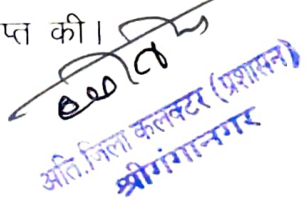 प्त की।
अति.जिला कलक्टर (प्रशासन)
श्रीगंगानगर